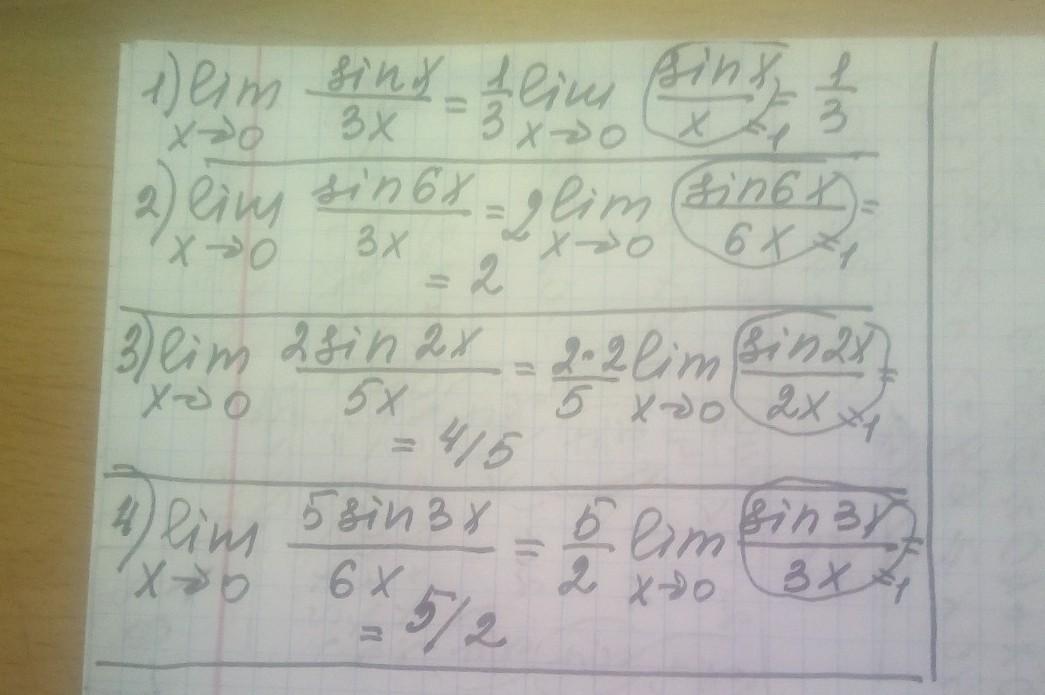 1) lim x→0 sin x / 3x = 1/3 lim x→0 sin x / x = 1 = 1/3
2) lim x→0 sin 6x / 3x = 2 lim x→0 sin 6x / 6x = 1 =
= 2
3) lim x→0 2 sin 2x / 5x = 2·2 / 5 lim x→0 sin 2x / 2x = 1 =
= 4/5
4) lim x→0 5 sin 3x / 6x = 5/2 lim x→0 sin 3x / 3x = 1 =
= 5/2